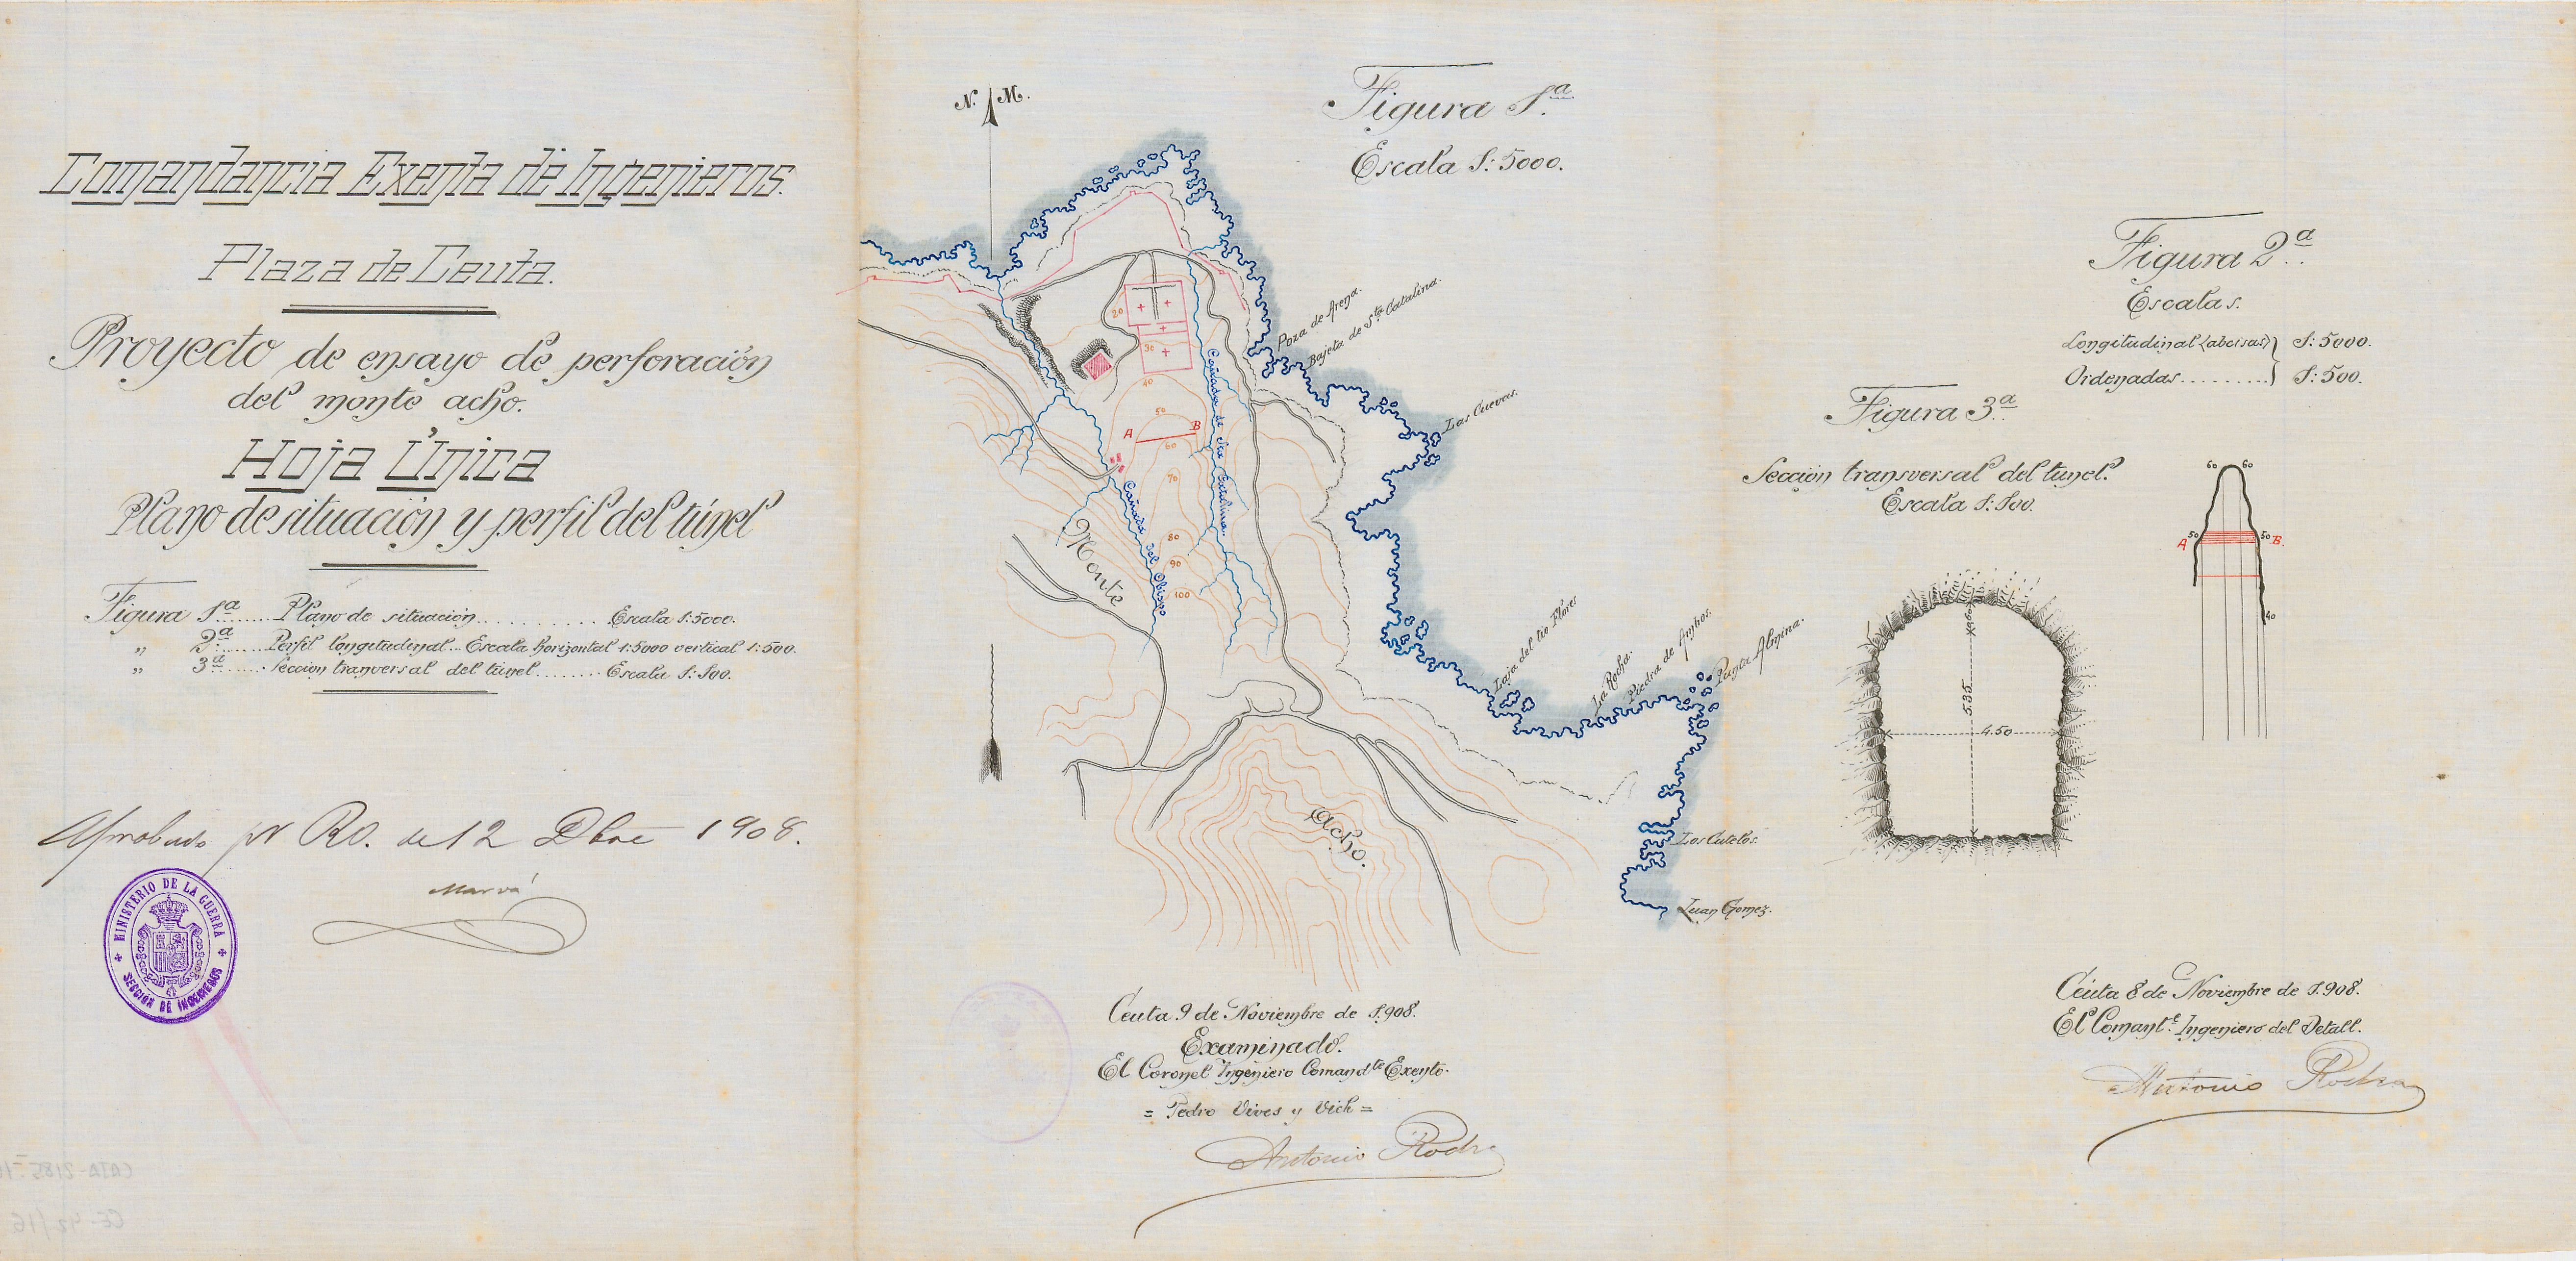 Comandancia Exenta de Ingenieros.
Plaza de Ceuta.
Proyecto de ensayo de perforación
del monte acho.
Hoja Única
Plano de situación y perfil del túnel
Figura 1ª ...... Plano de situación ........... Escala 1:5000.
„ 2ª ...... Perfil longitudinal... Escala horizontal 1:5000 vertical 1:500.
„ 3ª ...... Seccion tranversal del túnel ........ Escala 1:100.
Aprobado por RO. de 12 Dbre 1908.
Marvá
MINISTERIO DE LA GUERRA
SECCION DE INGENIEROS
N. M.
Figura 1ª
Escala 1:5000.
Poza de Arena.
Bajeta de Sta Catalina.
Las Cuevas.
Laja del tio Flores
La Rocha.
Piedra de Ambos.
Punta Almina.
Los Cutelos.
Juan Gomez.
20
30
40
50
A B
60
70
80
90
100
Cañada de Sta Catalina.
Cañada del Obispo
Monte
Acho.
Ceuta 9 de Noviembre de 1.908.
Examinado.
El Coronel Ingeniero Comandte Exento.
= Pedro Vives y Vich =
Antonio Rocha
Figura 2ª
Escalas.
Longitudinal (abcisas) 1:5000.
Ordenadas .......... 1:500.
60 60
A 50 50 B.
40
Figura 3ª
Sección transversal del tunel.
Escala 1:100.
5.35
4.50
Ceuta 8 de Noviembre de 1.908.
El Comante Ingeniero del Detall.
Antonio Rocha